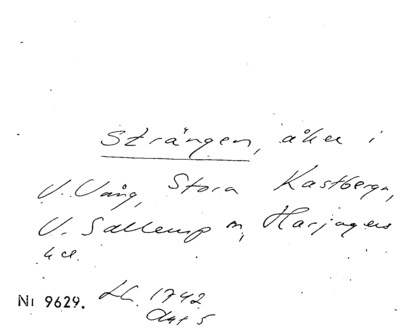 Strängen, åker i
V. Vång, Stora Kastberga,
V. Sallerup sn, Harjagers
hd.
Nr 9629. LK. 1742
Akt 5